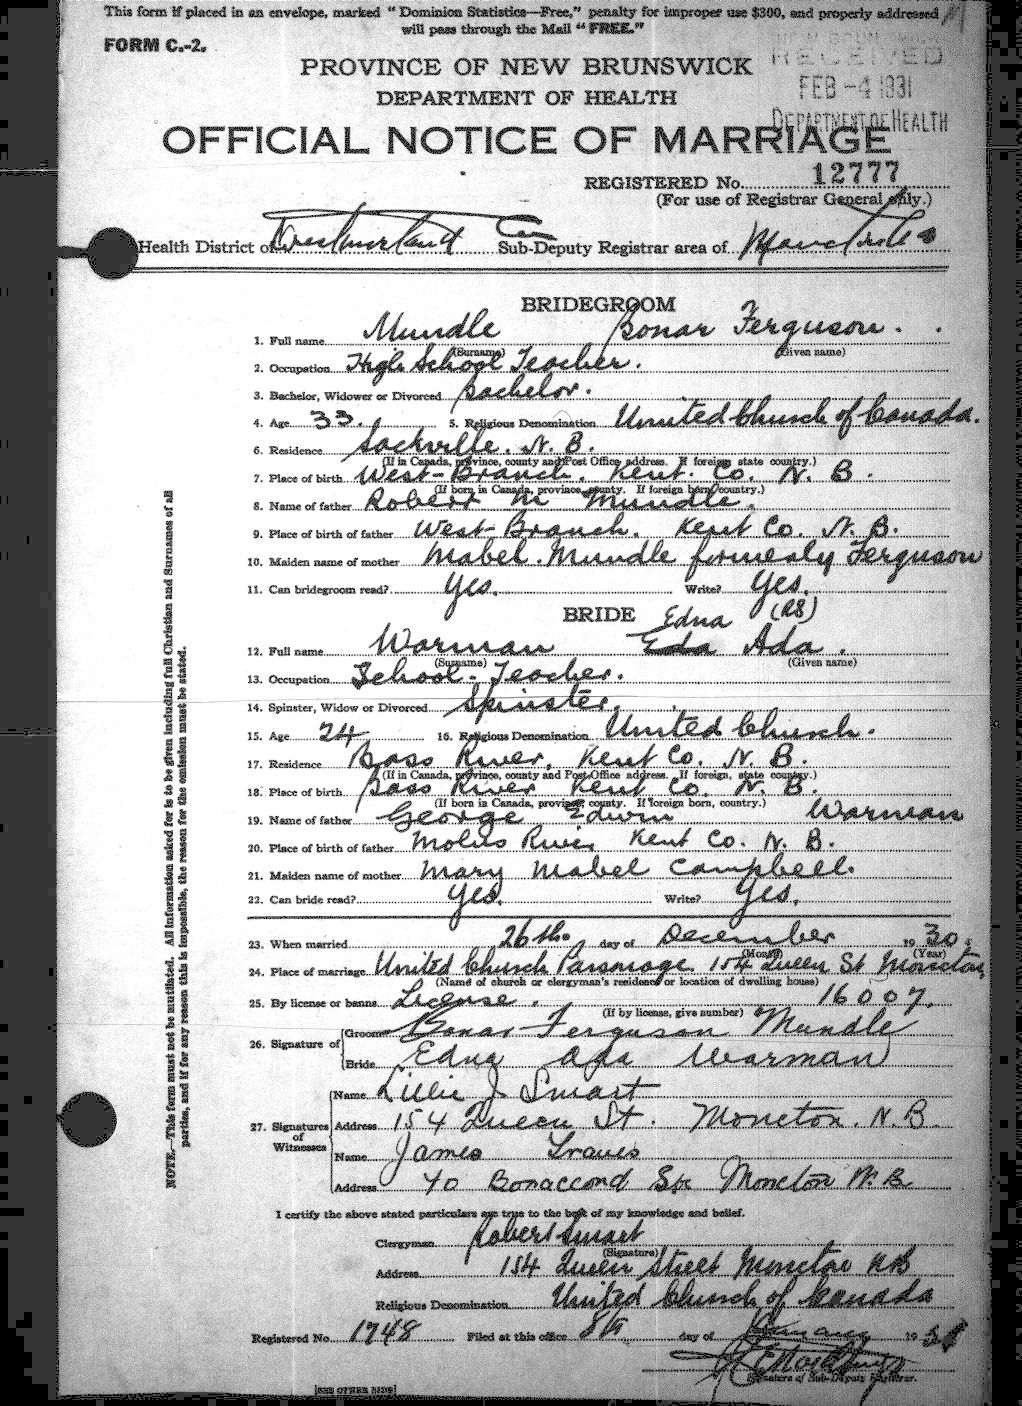 This form if placed in an envelope, marked "Dominion Statistics—Free," penalty for improper use $300, and properly addressed
will pass through the Mail "FREE."
FORM C.-2.
RECEIVED
FEB -4 1931
DEPARTMENT OF HEALTH
PROVINCE OF NEW BRUNSWICK
DEPARTMENT OF HEALTH
OFFICIAL NOTICE OF MARRIAGE
REGISTERED No. 12777
(For use of Registrar General only.)
Health District of Westmorland Co Sub-Deputy Registrar area of Moncton
BRIDEGROOM
1. Full name Mundle Bonar Ferguson.
(Surname) (Given name)
2. Occupation High School Teacher.
3. Bachelor, Widower or Divorced Bachelor.
4. Age 33. 5. Religious Denomination United Church of Canada.
6. Residence Sackville. N. B.
(If in Canada, province, county and Post Office address. If foreign state country.)
7. Place of birth West-Branch. Kent Co. N. B.
(If born in Canada, province, county. If foreign born, country.)
8. Name of father Robert M Mundle.
9. Place of birth of father West-Branch. Kent Co. N. B.
10. Maiden name of mother Mabel. Mundle formealy Ferguson
11. Can bridegroom read? Yes. Write? Yes.
BRIDE Edna (RS)
12. Full name Warman Eda Ada.
(Surname) (Given name)
13. Occupation School-Teacher.
14. Spinster, Widow or Divorced Spinster.
15. Age 24 16. Religious Denomination United Church.
17. Residence Bass River, Kent Co. N. B.
(If in Canada, province, county and Post Office address. If foreign, state country.)
18. Place of birth Bass River Kent Co. N. B.
(If born in Canada, province, county. If foreign born, country.)
19. Name of father George Edwin Warman
20. Place of birth of father Molus River Kent Co. N. B.
21. Maiden name of mother Mary Mabel Campbell.
22. Can bride read? Yes. Write? Yes.
23. When married 26th. day of December 1930.
(Month) (Year)
24. Place of marriage United Church Parsonage 154 Queen St Moncton,
(Name of church or clergyman's residence or location of dwelling house)
25. By license or banns License. 16007.
(If by license, give number)
26. Signature of Groom Bonar Ferguson Mundle
Bride Edna Ada Warman
27. Signatures of Witnesses
Name Lillie J Smart
Address 154 Queen St. Moncton. N. B.
Name James Graves
Address 40 Bonaccord St. Moncton N. B.
I certify the above stated particulars are true to the best of my knowledge and belief.
Clergyman Robert Smart
(Signature)
Address 154 Queen Street Moncton N B
Religious Denomination United Church of Canada
Registered No. 1748 Filed at this office 8th day of January 1931
Signature of Sub-Deputy Registrar.
[SEE OTHER SIDE]
NOTE.—This form must not be mutilated. All information asked for is to be given including full Christian and Surnames of all
parties, and if for any reason this is impossible, the reason for the omission must be stated.